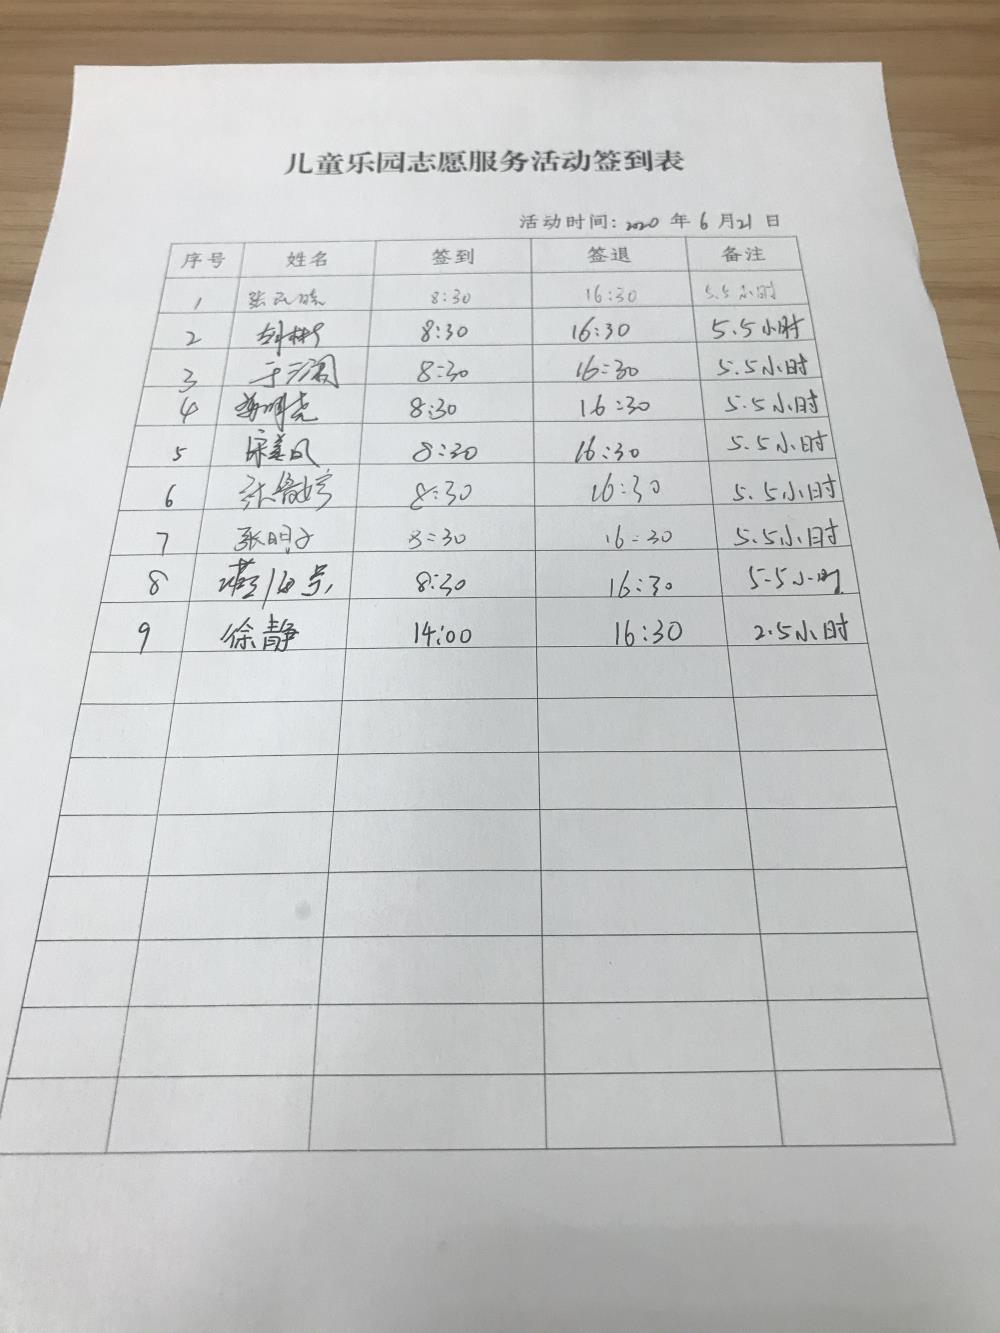 儿童乐园志愿服务活动签到表
活动时间: 2020 年 6 月 21 日
序号 姓名 签到 签退 备注
1 8:30 16:30 5.5小时
2 8:30 16:30 5.5小时
3 8:30 16:30 5.5小时
4 8:30 16:30 5.5小时
5 宋美凤 8:30 16:30 5.5小时
6 8:30 16:30 5.5小时
7 张明子 8:30 16:30 5.5小时
8 8:30 16:30 5.5小时
9 徐静 14:00 16:30 2.5小时